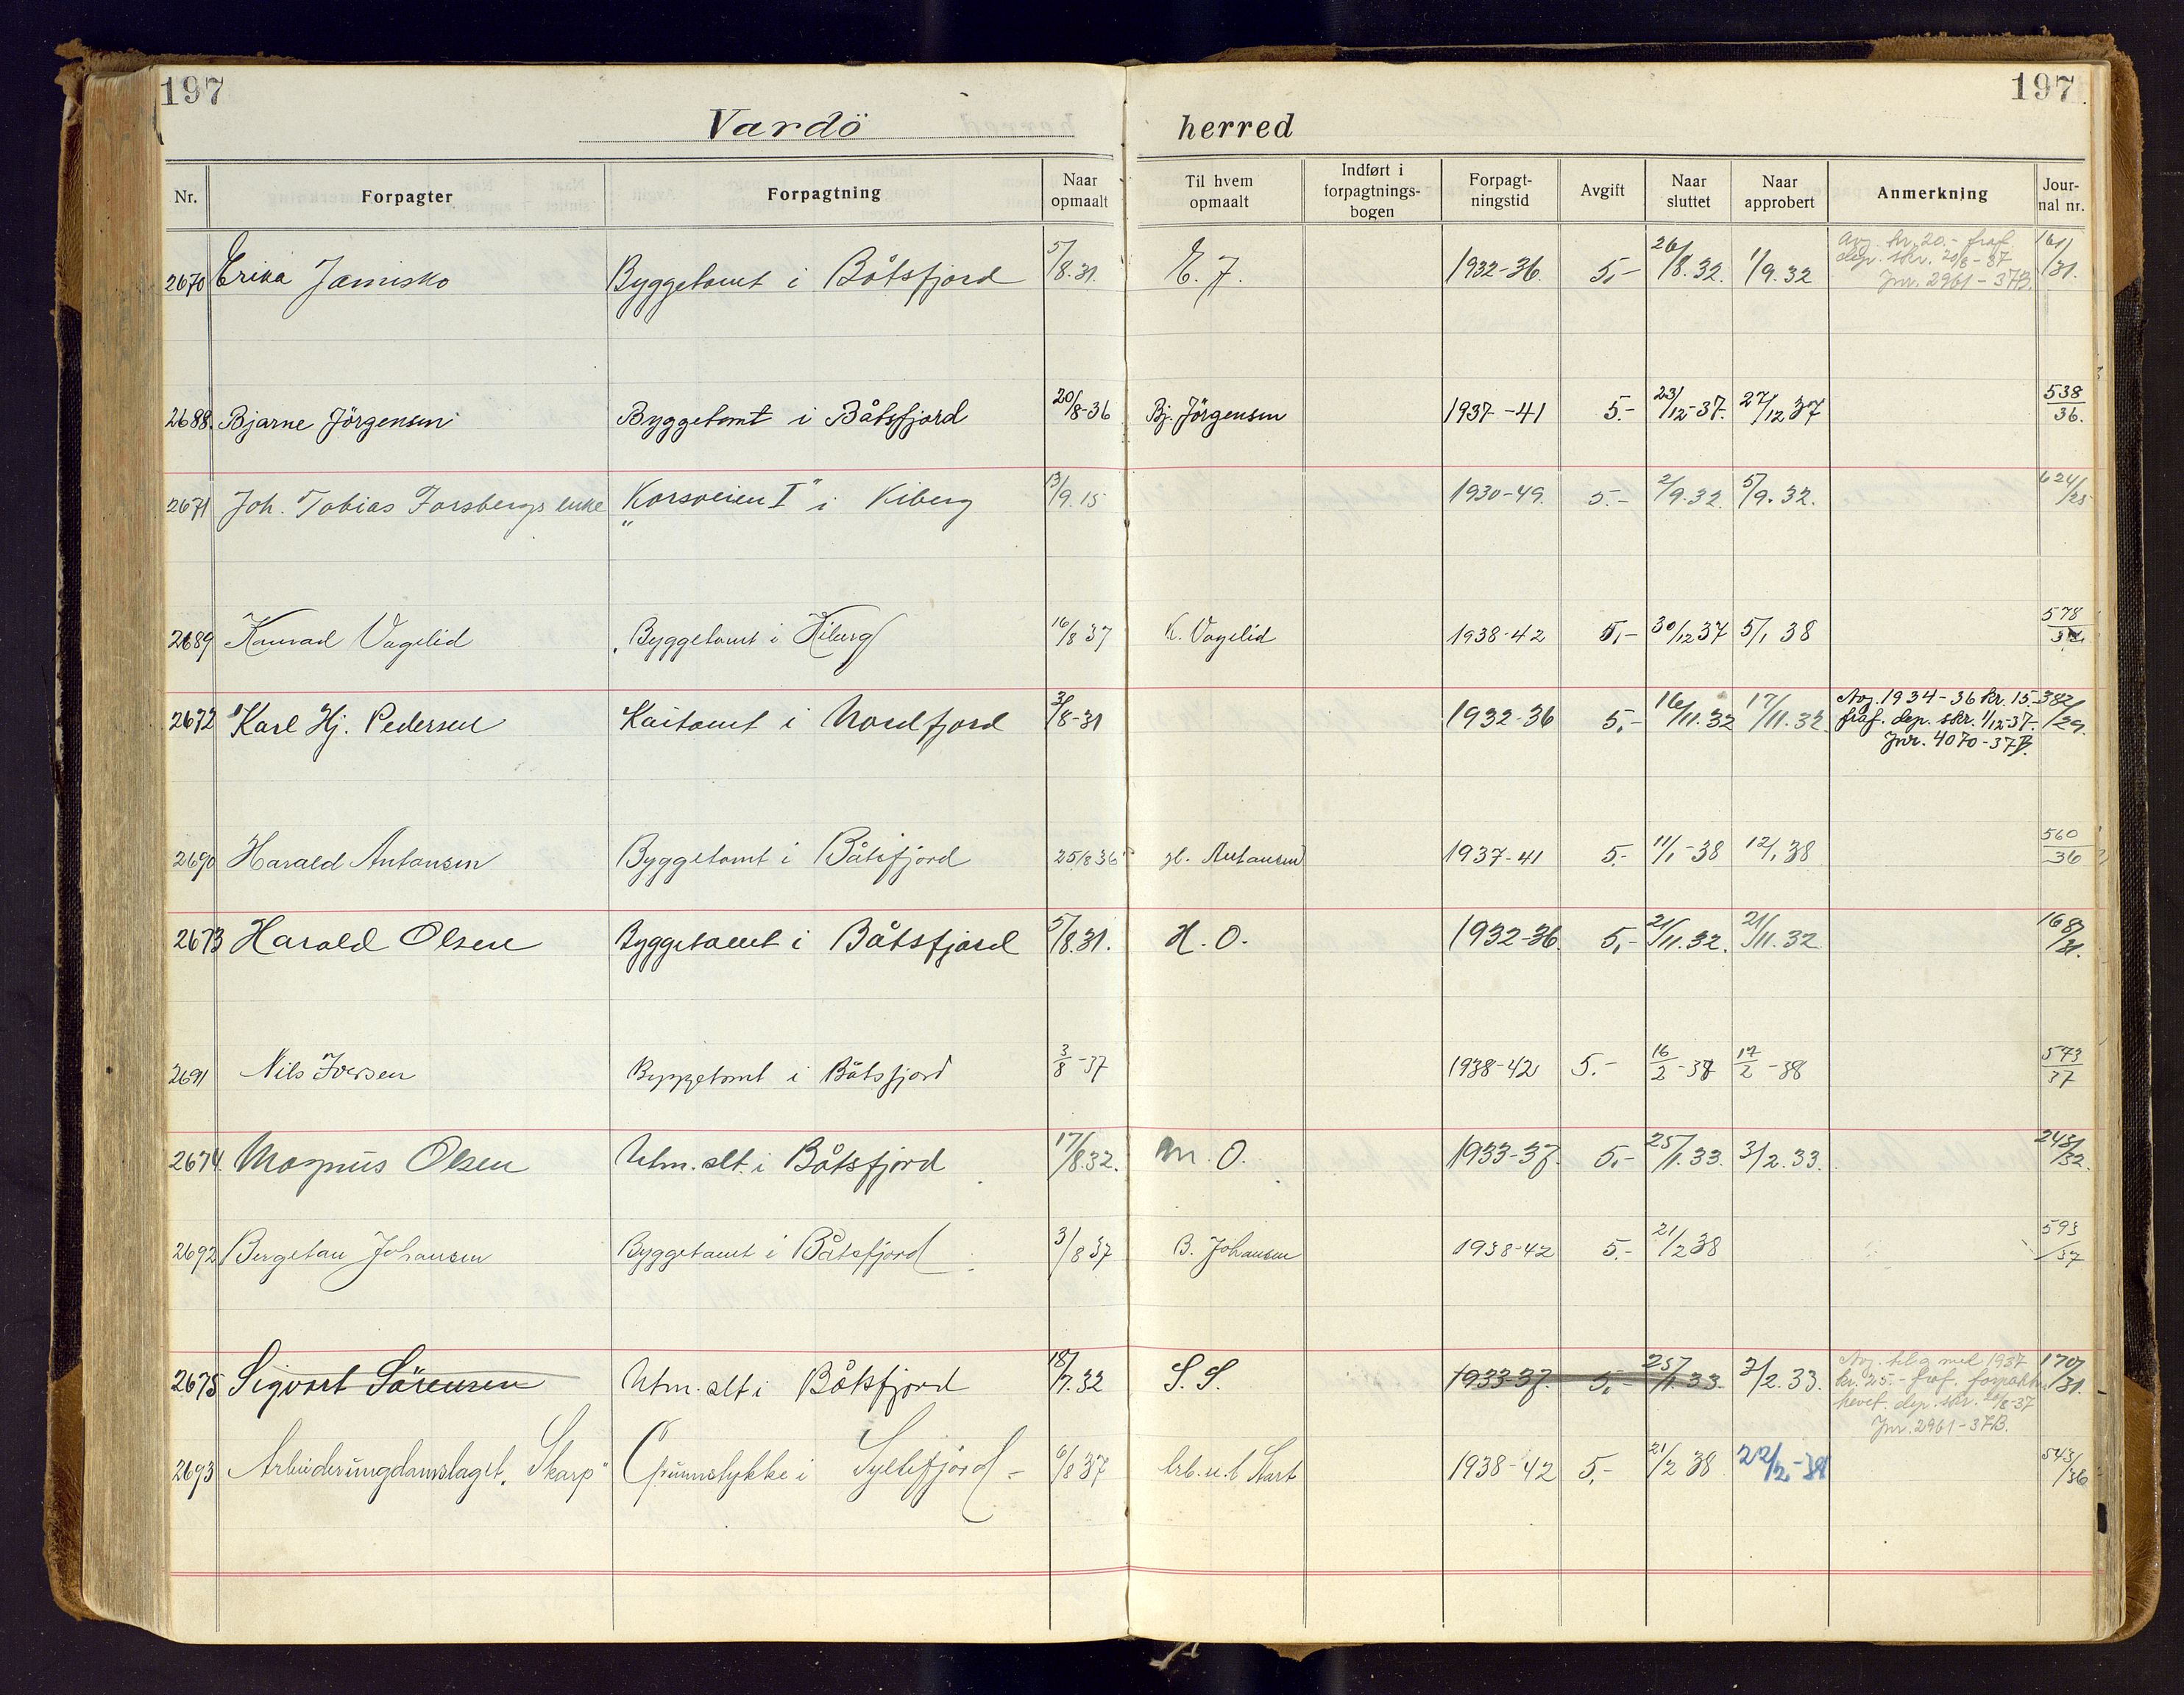 197
197
Vardö herred
Nr. Forpagter Forpagtning Naar opmaalt Til hvem opmaalt Indført i forpagtnings-bogen Forpagt-ningstid Avgift Naar sluttet Naar approbert Anmerkning Jour-nal nr.
2670 Erika Jamisko Byggetomt i Båtsfjord 5/8.31. E. J. 1932-36. 5,- 26/8.32. 1/9.32 Avg. kr. 20.- fraf. 161/31.
dep. skr. 20/8-37
Jnr. 2961-37B.
2688. Bjarne Jörgensen Byggetomt i Båtsfjord 20/8-36 Bj. Jörgensen 1937-41 5.- 23/12-37. 27/12 37 538/36.
2671 Joh. Tobias Forsbergs enke "Korsveien I" i Kiberg 13/9.15 1930-49. 5.- 2/9.32. 5/9.32. 624/25
2689 Konrad Vagelid Byggetomt i Kiberg 16/8 37 K. Vagelid 1938-42 5,- 30/12 37 5/1 38 578
2672 Karl Hj. Pedersen Kaitomt i Nordfjord 3/8-31 1932-36 5,- 16/11.32 17/11.32. Avg. 1934-36 kr. 15.- 382/29.
fraf. dep. skr. 1/12-37.
Jnr. 4070-37B.
2690 Harald Antonsen Byggetomt i Båtsfjord 25/8 36 H. Antonsen 1937-41 5.- 11/1-38 12/1 38 560/36
2673 Harald Olsen Byggetomt i Båtsfjord 5/8.31. H. O. 1932-36. 5,- 21/11.32. 21/11.32 168/31.
2691 Nils Iversen Byggetomt i Båtsfjord 3/8-37 1938-42 5.- 16/2-38 17/2-38 573/37
2674 Magnus Olsen Utm. slt. i Båtsfjord 17/8.32. M. O. 1933-37. 5,- 25/1.33. 3/2.33. 243/32.
2692 Bergetau Johansen Byggetomt i Båtsfjord 3/8 37 B. Johansen 1938-42 5.- 21/2 38 593/37
2675 Sigvart Sörensen Utm. slt i Båtsfjord 18/7.32 S. S. 1933-37. 5,- 25/1.33. 3/2.33. Avg. til o med 1937 170/31.
kr. 25.- fraf. forpaktn.
hevet. dep. skr. 20/8-37
Jnr. 2961-37B.
2693 Arbeiderungdomslaget "Skarp" Grunnstykke i Syltefjord - 6/8 37 Arb. u. l. Start 1938-42 5,- 21/2 38 22/2-38 543/36